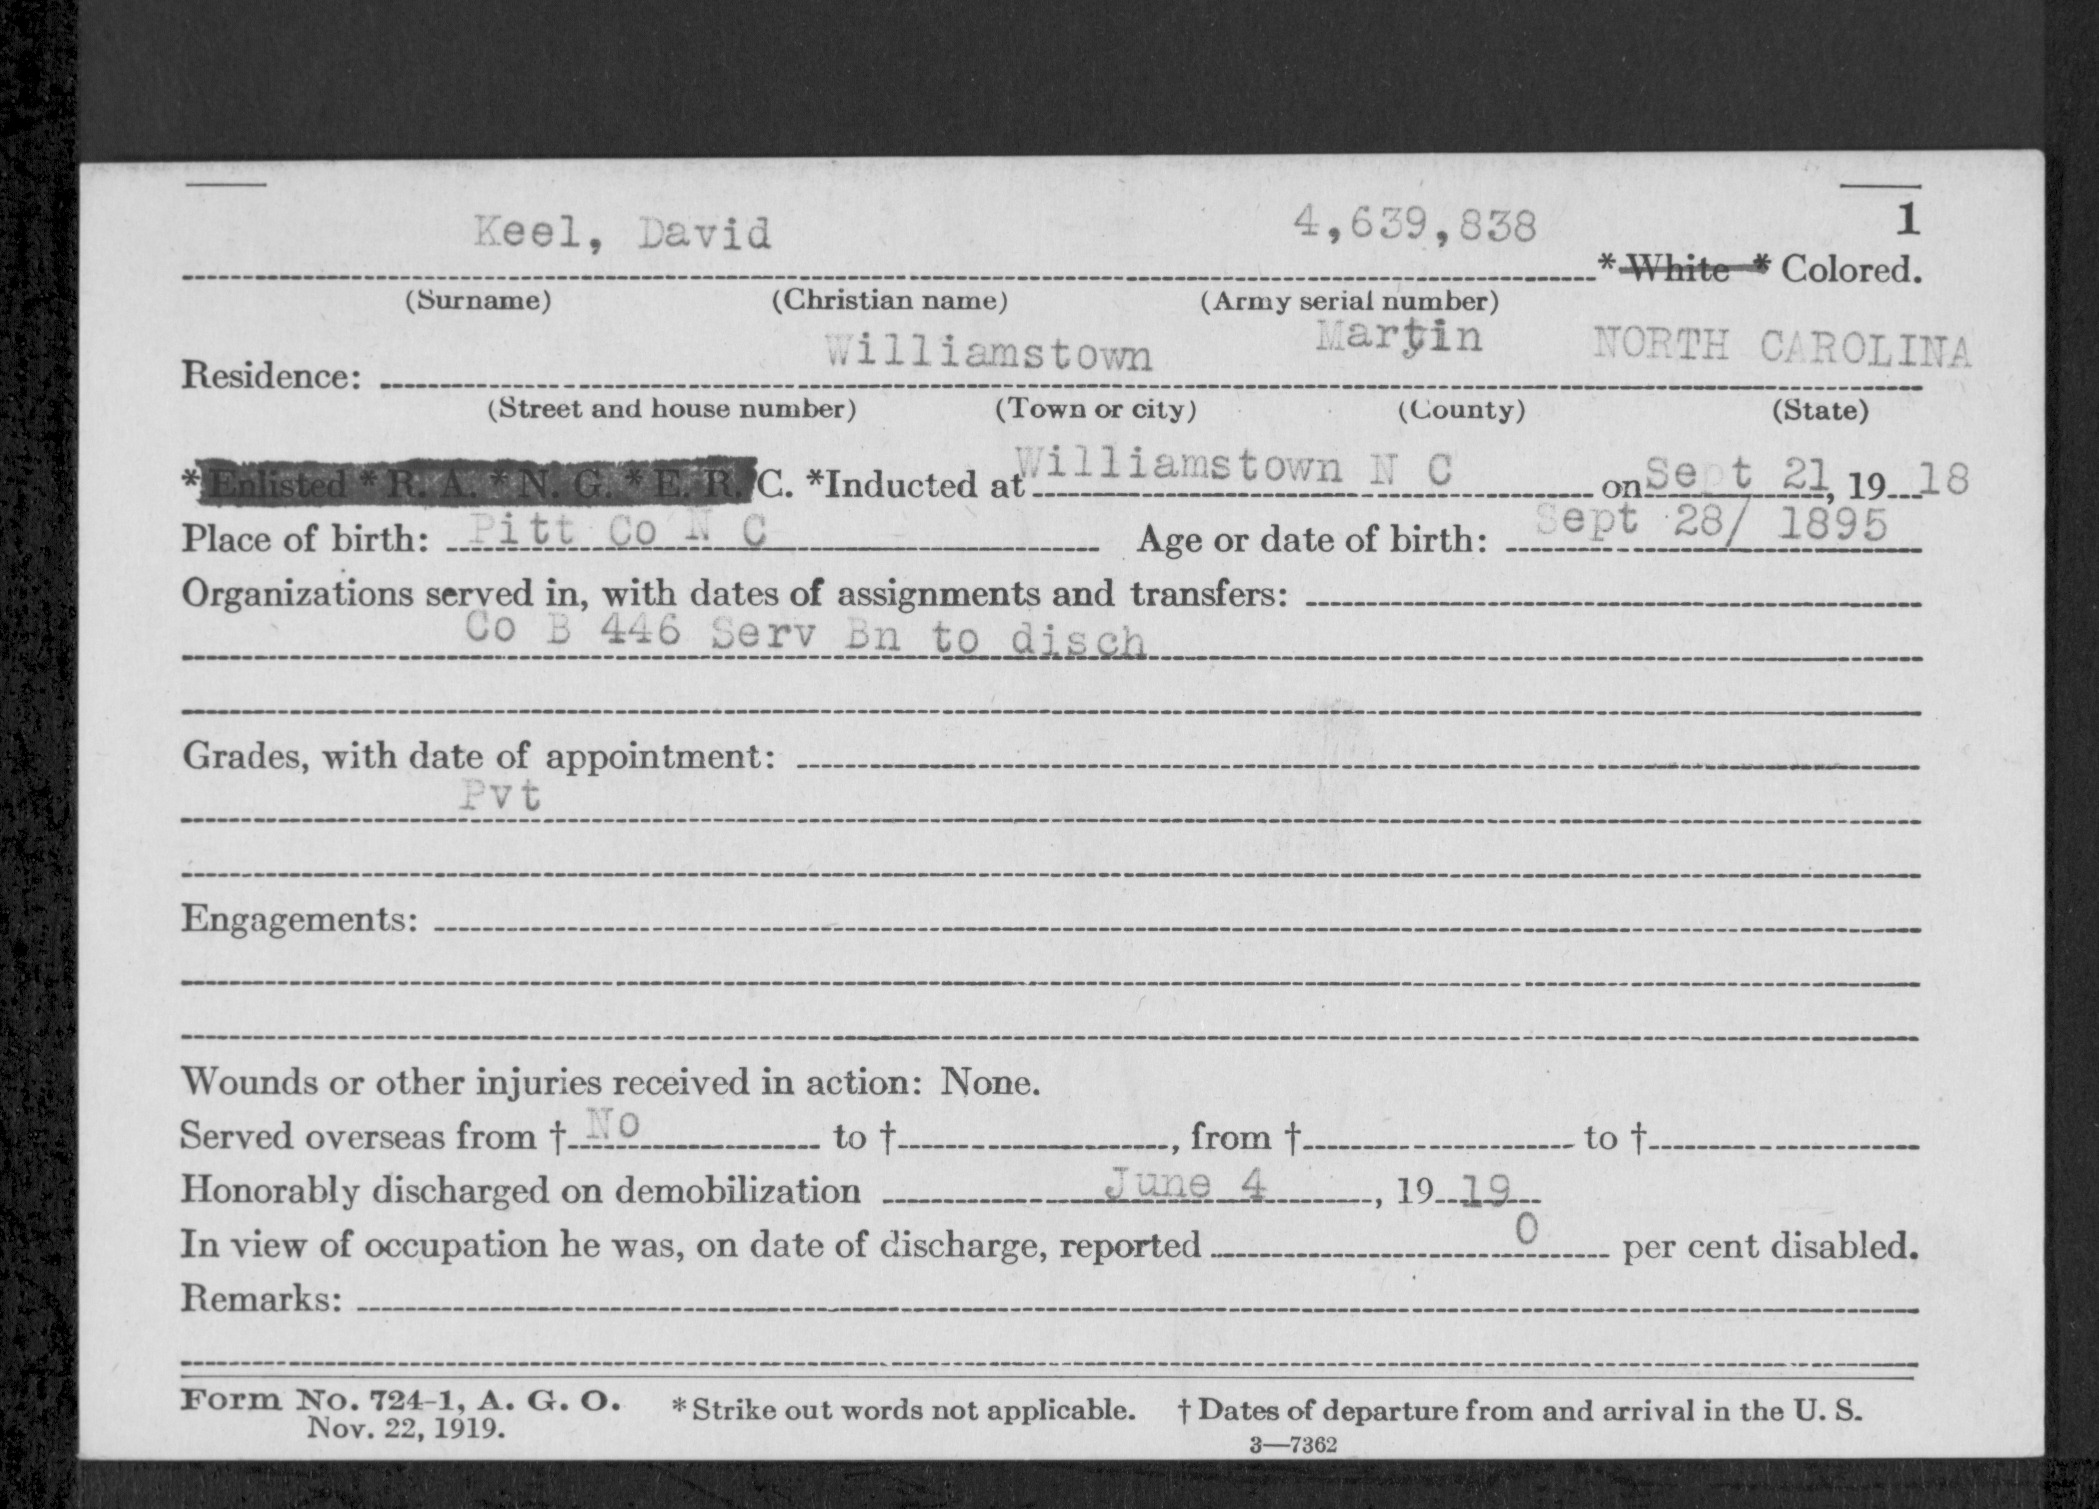 Keel, David 4,639,838 1
*White * Colored.
(Surname) (Christian name) (Army serial number)
Residence: Williamstown Martin NORTH CAROLINA
(Street and house number) (Town or city) (County) (State)
*Enlisted * R. A. * N. G. * E. R. C. *Inducted at Williamstown N C on Sept 21, 19 18
Place of birth: Pitt Co N C Age or date of birth: Sept 28/ 1895
Organizations served in, with dates of assignments and transfers:
Co B 446 Serv Bn to disch
Grades, with date of appointment:
Pvt
Engagements:
Wounds or other injuries received in action: None.
Served overseas from † No to †, from † to †
Honorably discharged on demobilization June 4, 19 19
In view of occupation he was, on date of discharge, reported 0 per cent disabled.
Remarks:
Form No. 724-1, A. G. O. * Strike out words not applicable. † Dates of departure from and arrival in the U. S.
Nov. 22, 1919.
3—7362